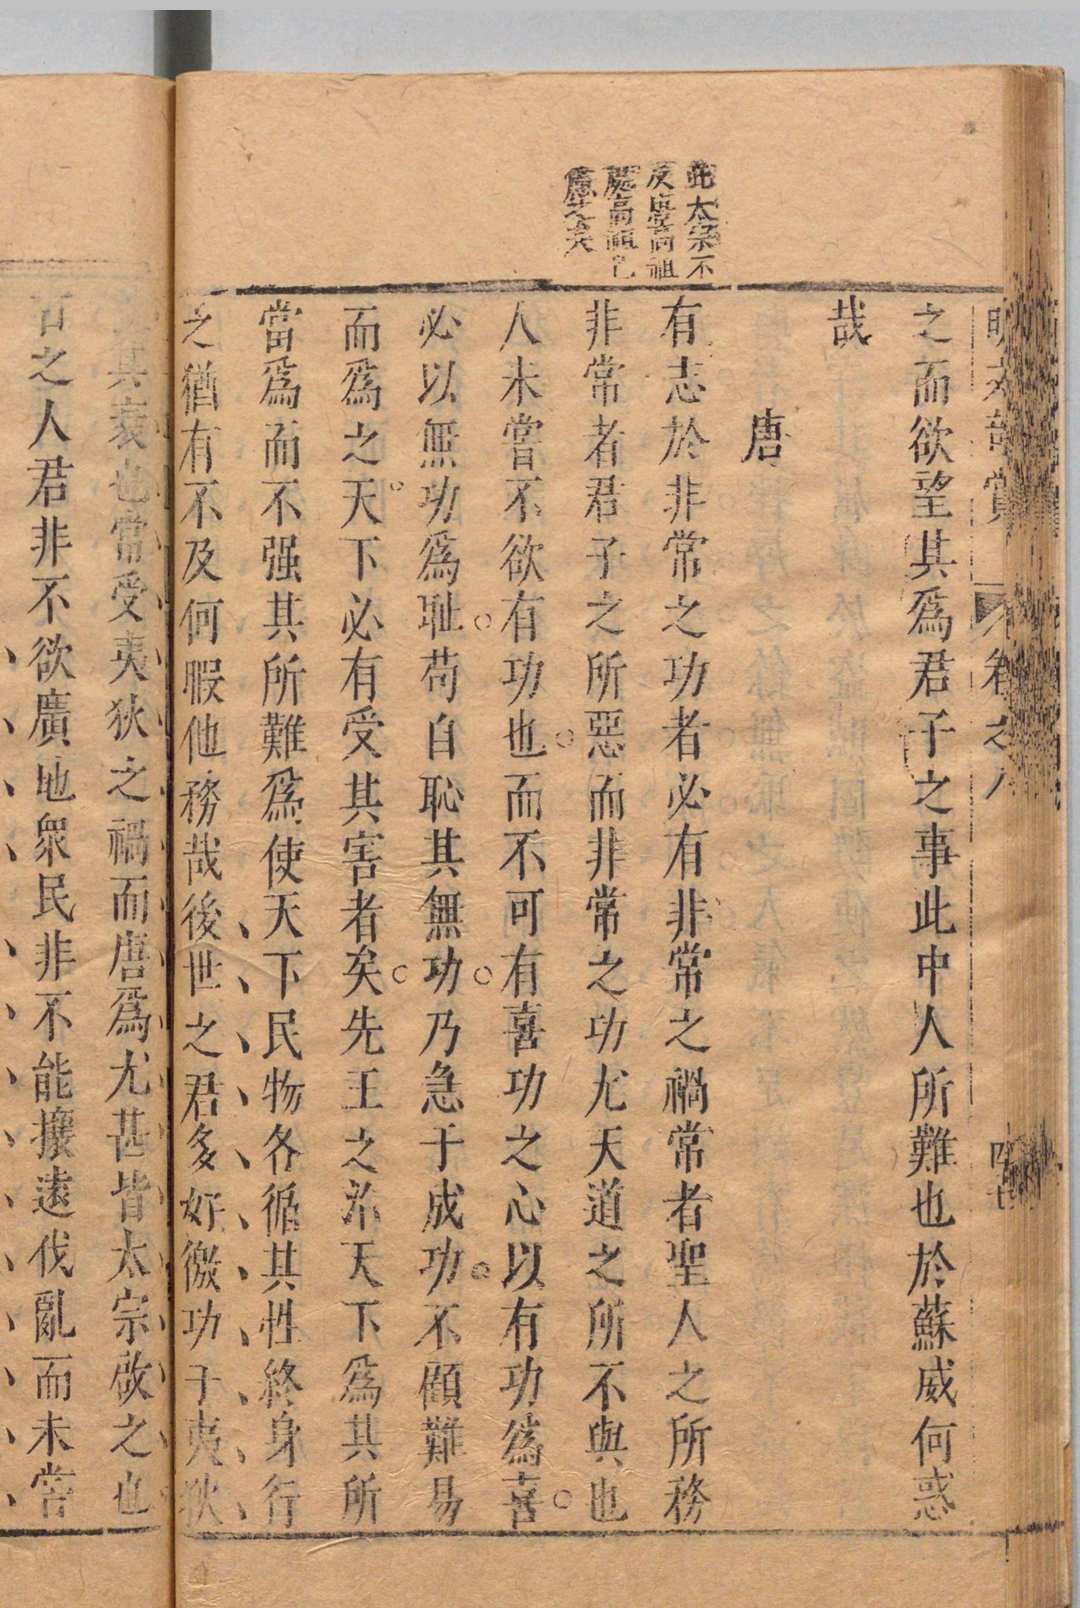 此太宗不
之而欲望其為君子之事此中人所難也於蘇威何惑
哉
唐
有志於非常之功者必有非常之禍常者聖人之所務
非常者君子之所惡而非常之功尤天道之所不與也
人未嘗不欲有功也而不可有喜功之心以有功為喜
必以無功為耻苟自恥其無功乃急于成功不顧難易
而為之天下必有受其害者矣先王之治天下為其所
當為而不强其所難為使天下民物各循其性終身行
之猶有不及何暇他務哉後世之君多好徼功于夷狄
其衰也常受夷狄之禍而唐為尤甚皆太宗啟之也
古之人君非不欲廣地眾民非不能攘遠伐亂而未嘗